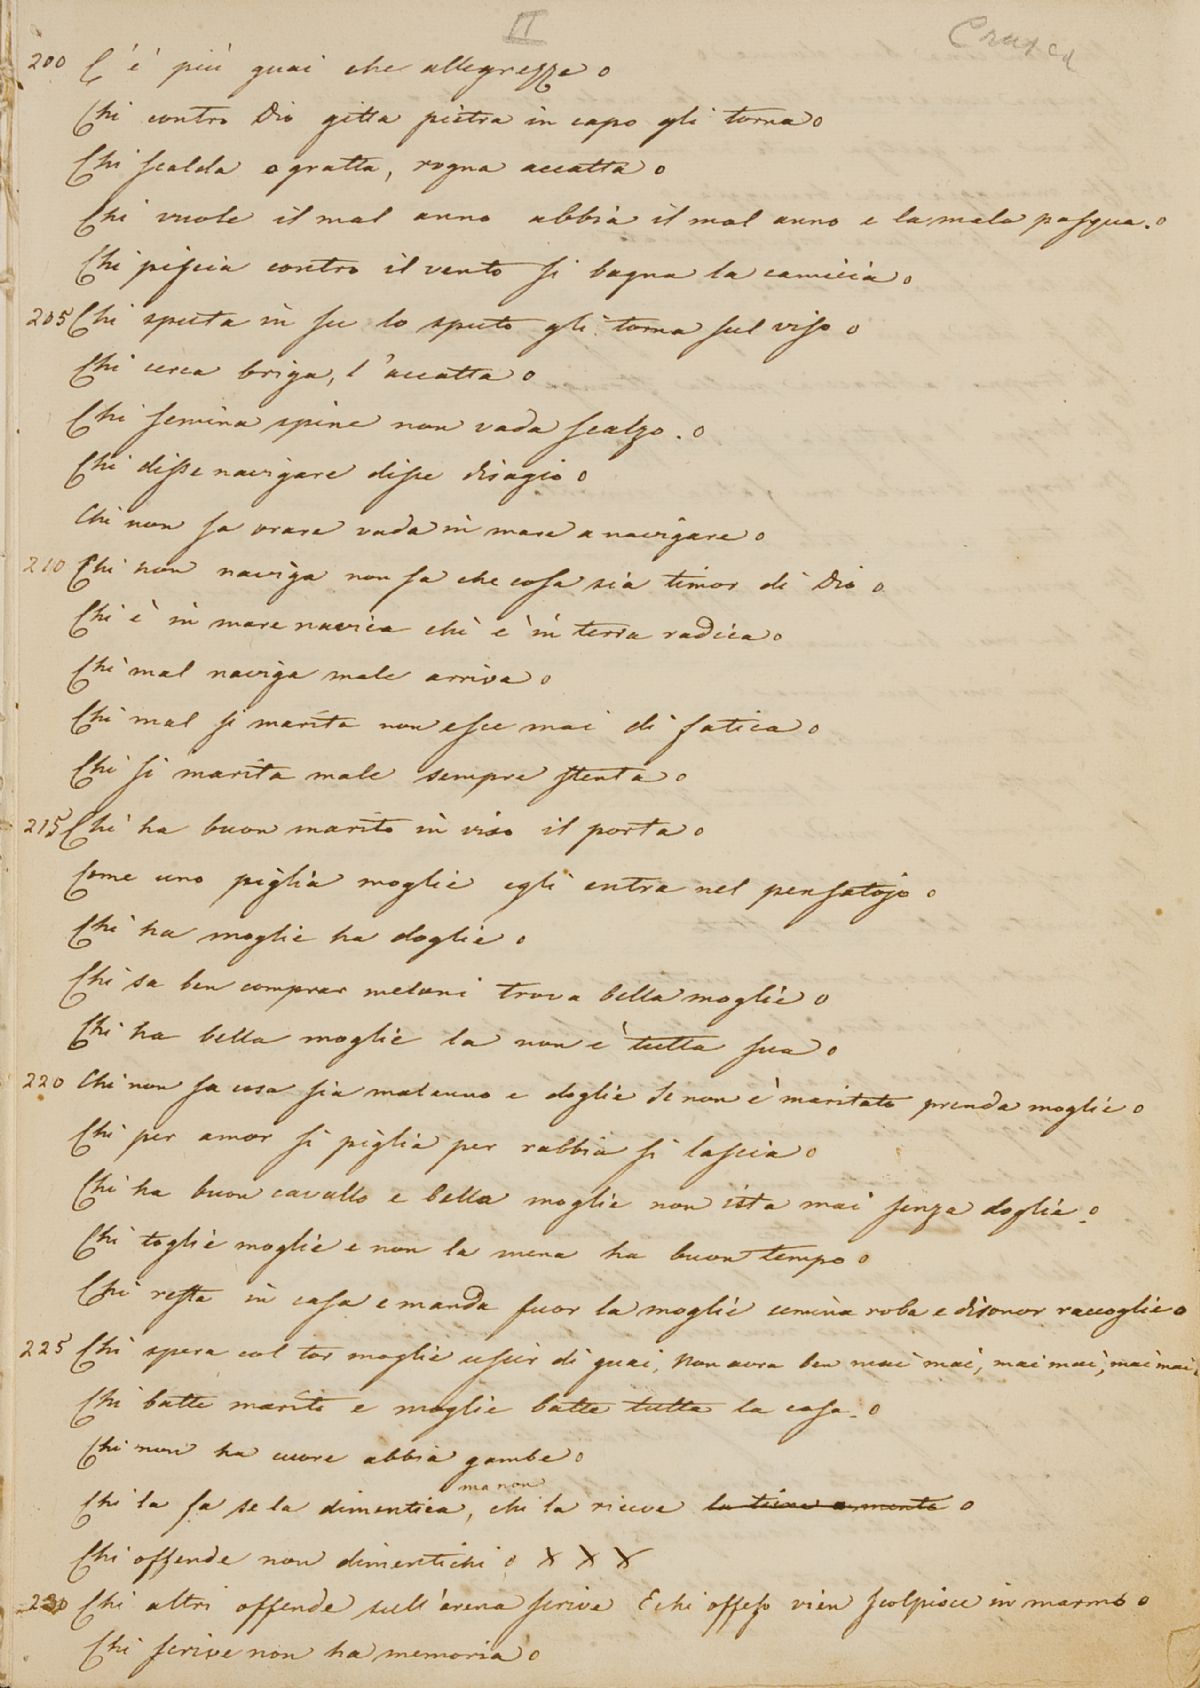 II
Crusca
200 C'è più guai che allegrezze o
Chi contro Dio gitta pietra in capo gli torna o
Chi scalda o gratta, rogna accatta o
Chi vuole il mal anno abbia il mal anno e la mala pasqua. o
Chi piscia contro il vento si bagna la camicia o
205 Chi sputa in su lo sputo gli torna sul viso o
Chi cerca briga, l'accatta o
Chi semina spine non vada scalzo. o
Chi disse navigare disse disagio o
Chi non sa orare vada in mare a navigare o
210 Chi non naviga non sa che cosa sia timor di Dio o
Chi è in mare navica chi è in terra radica o
Chi mal naviga male arriva o
Chi mal si marita non esce mai di fatica o
Chi si marita male sempre stenta o
215 Chi ha buon marito in viso il porta o
Come uno piglia moglie egli entra nel pensatojo o
Chi ha moglie ha doglie o
Chi sa ben comprar meloni trova bella moglie o
Chi ha bella moglie la non è tutta sua o
220 Chi non sa cosa sia malanno e doglie se non è maritato prenda moglie o
Chi per amor si piglia per rabbia si lascia o
Chi ha buon cavallo e bella moglie non ista mai senza doglie. o
Chi toglie moglie e non la mena ha buon tempo o
Chi resta in casa e manda fuor la moglie semina roba e disonor raccoglie o
225 Chi spera col tor moglie uscir di guai, Non avra ben mai mai, mai mai, mai mai.
Chi batte marito e moglie batte tutta la casa. o
Chi non ha cuore abbia gambe o
Chi la fa se la dimentica, ma non chi la riceve la tiene a mente o
Chi offende non dimentichi o X X X
230 Chi altri offende sull'arena scrive E chi offeso vien scolpisce in marmo o
Chi scrive non ha memoria o